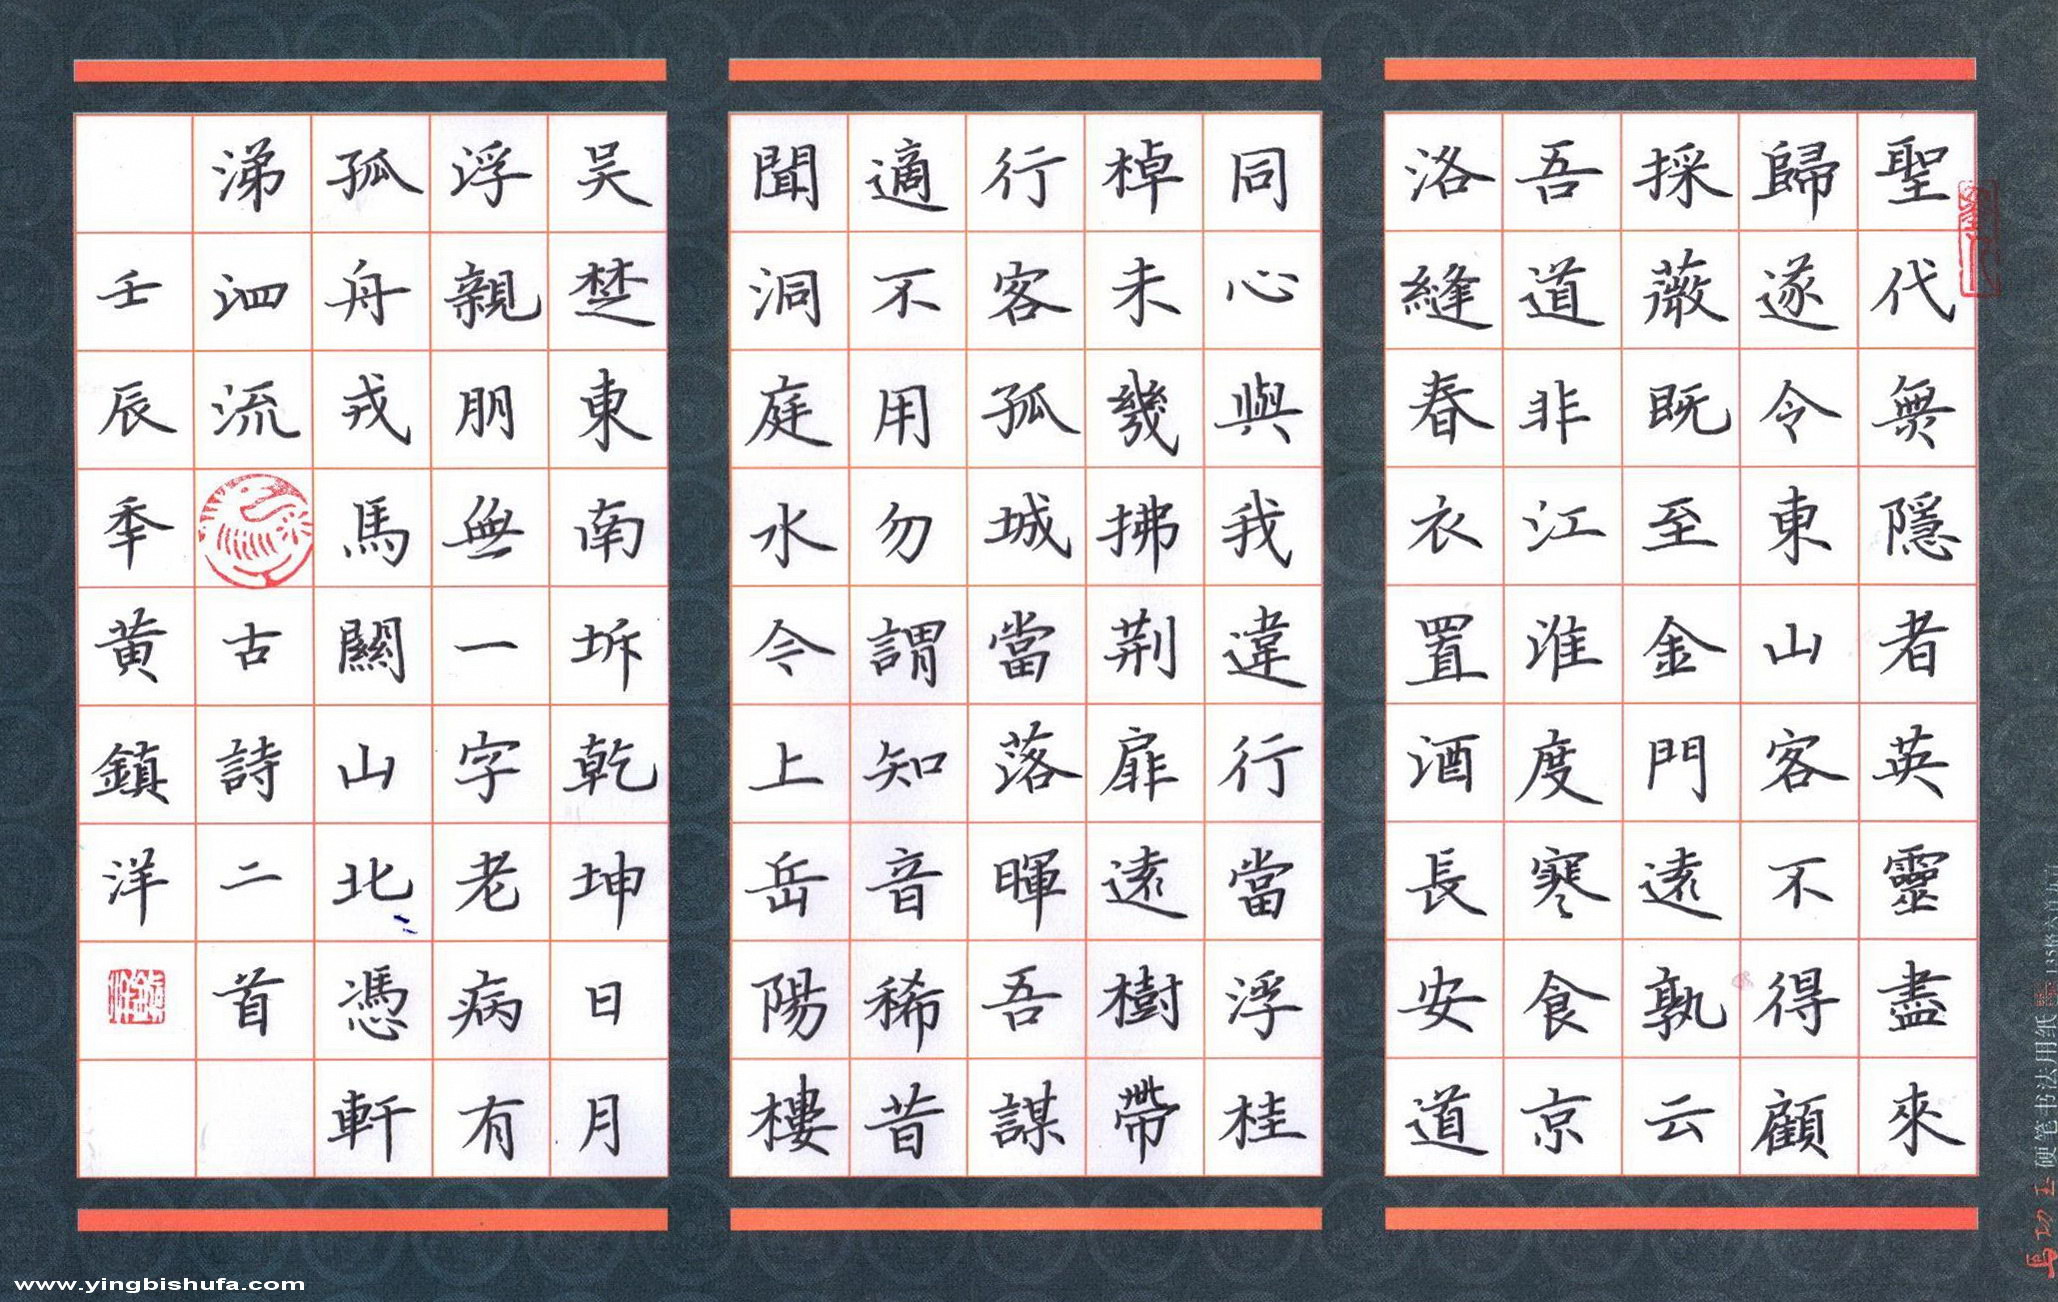 聖代無隱者英靈盡來
歸遂令東山客不得顧
採薇既至金門遠孰云
吾道非江淮度寒食京
洛縫春衣置酒長安道
同心與我違行當浮桂
棹未幾拂荆扉遠樹帶
行客孤城當落暉吾謀
適不用勿謂知音稀昔
聞洞庭水今上岳陽樓
吳楚東南坼乾坤日月
浮親朋無一字老病有
孤舟戎馬關山北憑軒
涕泗流 古詩二首
壬辰秊黄鎮洋
硬笔书法用纸
www.yingbishufa.com